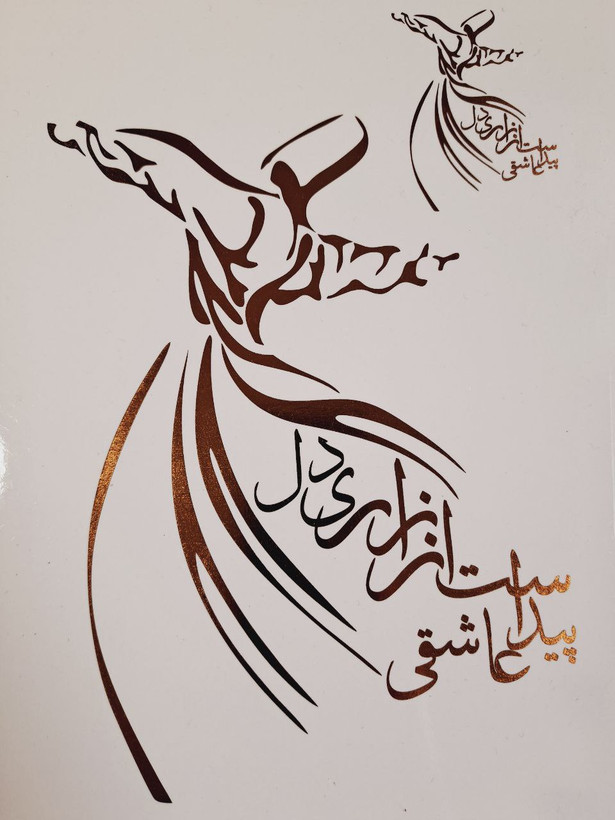 عاشقی پیداست از زاری دل
عاشقی پیداست از زاری دل